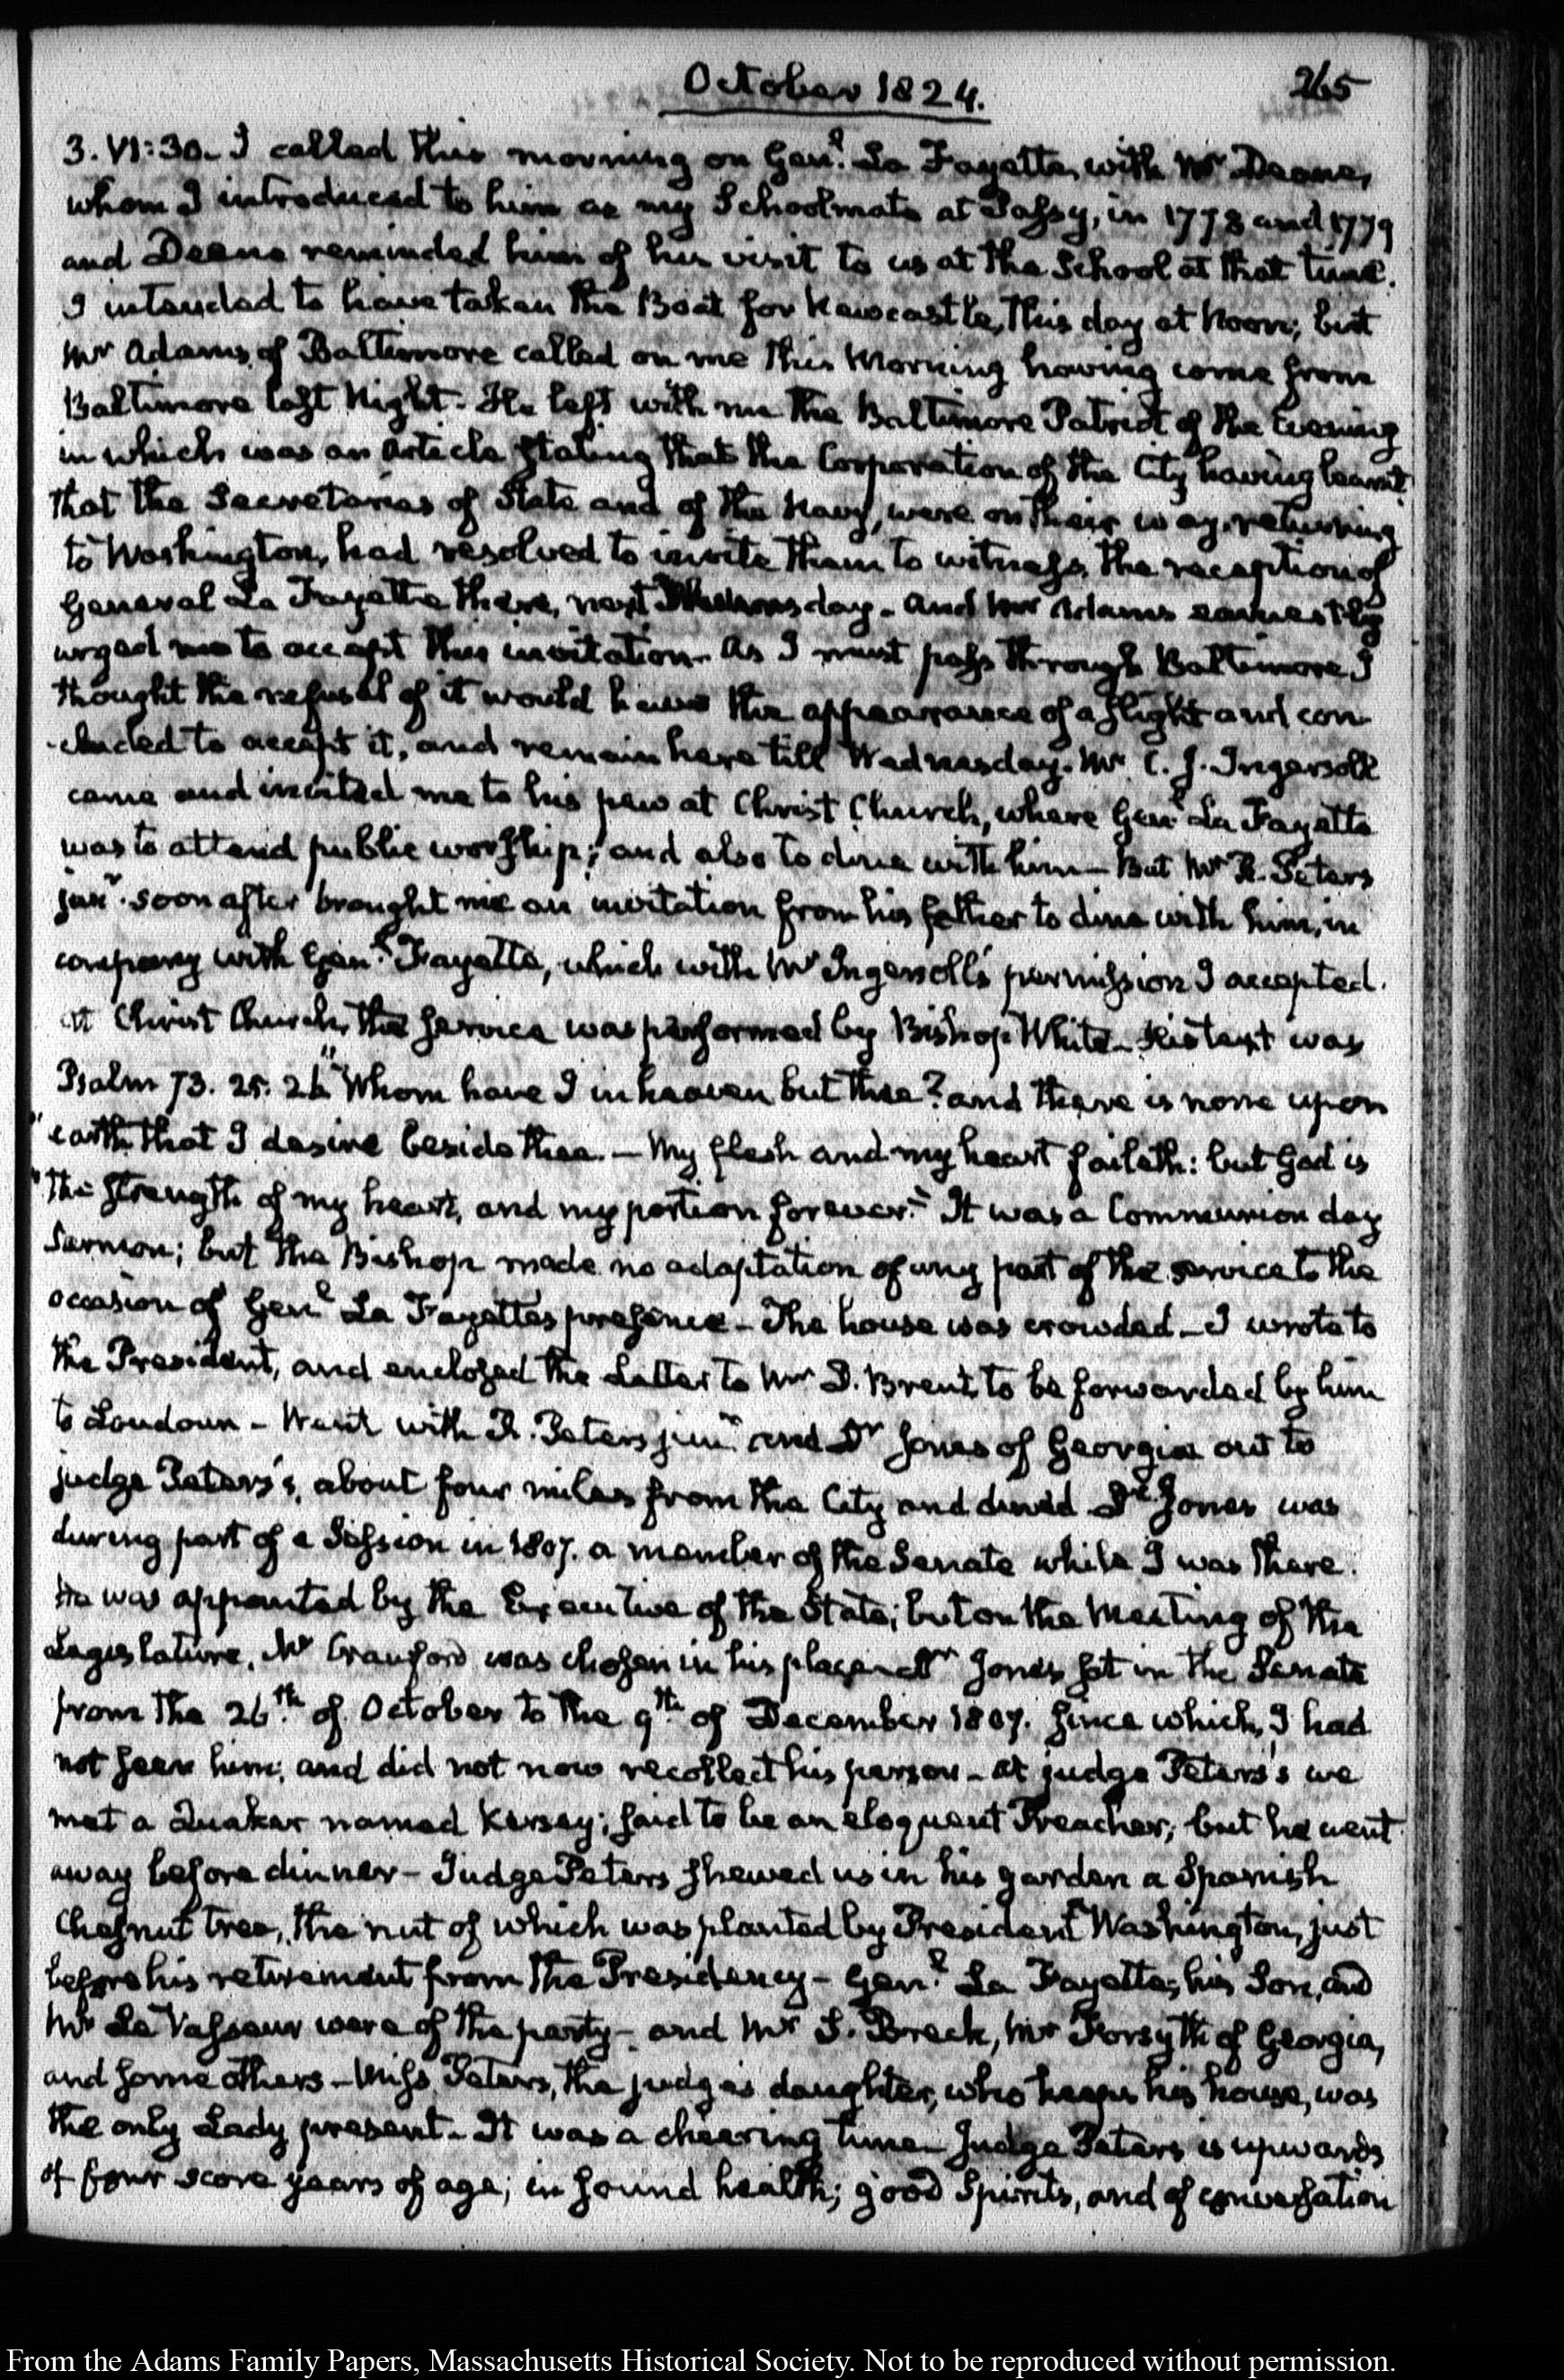 October 1824.
265
3. VI:30. I called this morning on Genl. La Fayette, with Mr Deane,
whom I introduced to him as my Schoolmate at Passy, in 1778 and 1779
and Deane reminded him of his visit to us at the School at that time.
I intended to have taken the Boat for Newcastle, this day at Noon; but
Mr Adams, of Baltimore called on me this Morning having come from
Baltimore last Night. He left with me the Baltimore Patriot of the Evening
in which was an Article stating that the Corporation of the City having learnt
that the Secretaries of State and of the Navy, were on their way, returning
to Washington, had resolved to invite them to witness, the reception of
General La Fayette there, next day. And Mr Adams earnestly
urged me to accept this invitation. As I must pass through Baltimore I
thought the refusal of it would have the appearance of a slight and con-
-cluded to accept it, and remain here till Wednesday. Mr C. J. Ingersoll
came and invited me to his pew at Christ Church, where Genl La Fayette
was to attend public worship; and also to dine with him— But Mr R. Peters
junr. soon after brought me an invitation from his father to dine with him, in
company with Genl. Fayette, which with Mr Ingersoll's permission I accepted.
At Christ Church, the service was performed by Bishop White— His text was
Psalm 73. 25. 26 "Whom have I in heaven but thee? and there is none upon
"earth that I desire beside thee. — My flesh and my heart faileth: but God is
"the strength of my heart, and my portion forever." It was a Communion day
Sermon; but the Bishop made no adaptation of any part of the service to the
occasion of Genl La Fayettes presence — The house was crowded — I wrote to
the President, and enclosed the Letter to Mr D. Brent, to be forwarded by him
to Loudoun — Went with R. Peters junr and Dr Jones of Georgia out to
judge Peters's, about four miles from the City and dined Dr. Jones was
during part of a Session in 1807. a member of the Senate while I was there.
He was appointed by the Executive of the State; but on the Meeting of the
Legislature, Mr Crawford was chosen in his place. Dr Jones sat in the Senate
from the 26th. of October to the 9th. of December 1807. Since which, I had
not seen him; and did not now recollect his person — At judge Peters's we
met a Quaker named Kersey; said to be an eloquent Preacher; but he went
away before dinner — Judge Peters shewed us in his garden a Spanish
Chesnut tree, the nut of which was planted by President Washington, just
before his retirement from the Presidency — Genl. La Fayette, his Son, and
Mr Le Vasseur were of the party — and Mr S. Breck, Mr Forsyth of Georgia,
and some others — Miss Peters, the judges daughter, who keeps his house, was
the only Lady present — It was a cheering time — Judge Peters is upwards
of four score years of age; in sound health; good Spirits, and of conversation
From the Adams Family Papers, Massachusetts Historical Society. Not to be reproduced without permission.